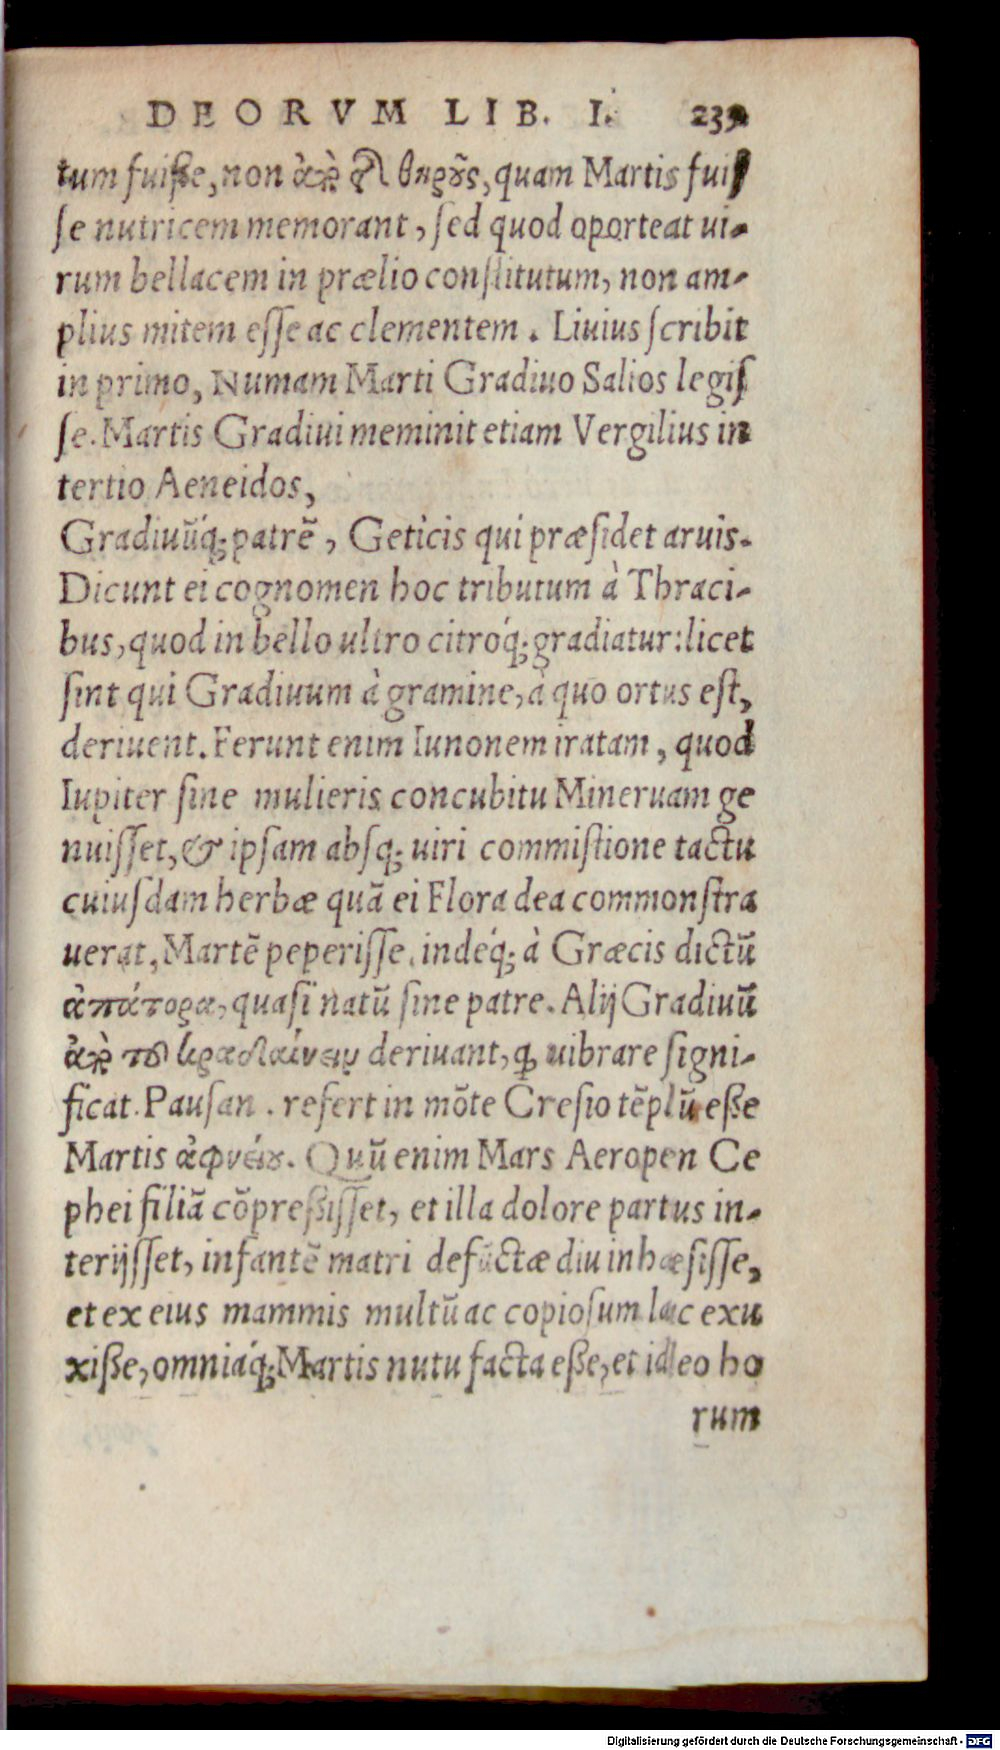 DEORVM LIB. I. 239
tum fuiße, non ἀπὸ τῆς θηροῦς, quam Martis fuiſ
ſe nutricem memorant, ſed quod oporteat ui-
rum bellacem in prælio conſtitutum, non am-
plius mitem eſſe ac clementem. Liuius ſcribit
in primo, Numam Marti Gradiuo Salios legiſ
ſe. Martis Gradiui meminit etiam Vergilius in
tertio Aeneidos,
Gradiuūq́; patrē, Geticis qui præſidet aruis.
Dicunt ei cognomen hoc tributum à Thraci-
bus, quod in bello ultro citróq́; gradiatur: licet
ſint qui Gradiuum à gramine, à quo ortus eſt,
deriuent. Ferunt enim Iunonem iratam, quod
Iupiter ſine mulieris concubitu Mineruam ge
nuiſſet, & ipſam abſq; uiri commiſtione tactu
cuiuſdam herbæ quā ei Flora dea commonſtra
uerat, Martē peperiſſe. indéq́; à Græcis dictū
ἀπάτορα, quaſi natū ſine patre. Alij Gradiuū
ἀπὸ τοῦ κραδαίνειν deriuant, ꝙ uibrare ſigni-
ficat. Pauſan. refert in mōte Creſio tēplū eße
Martis ἀφνείου. Quū enim Mars Aeropen Ce
phei filiā cōpreßiſſet, et illa dolore partus in-
terijſſet, infantē matri defūctæ diu inhæſiſſe,
et ex eius mammis multū ac copioſum lac exu
xiße, omniáq́; Martis nutu facta eße, et ideo ho
rum
Digitalisierung gefördert durch die Deutsche Forschungsgemeinschaft - DFG